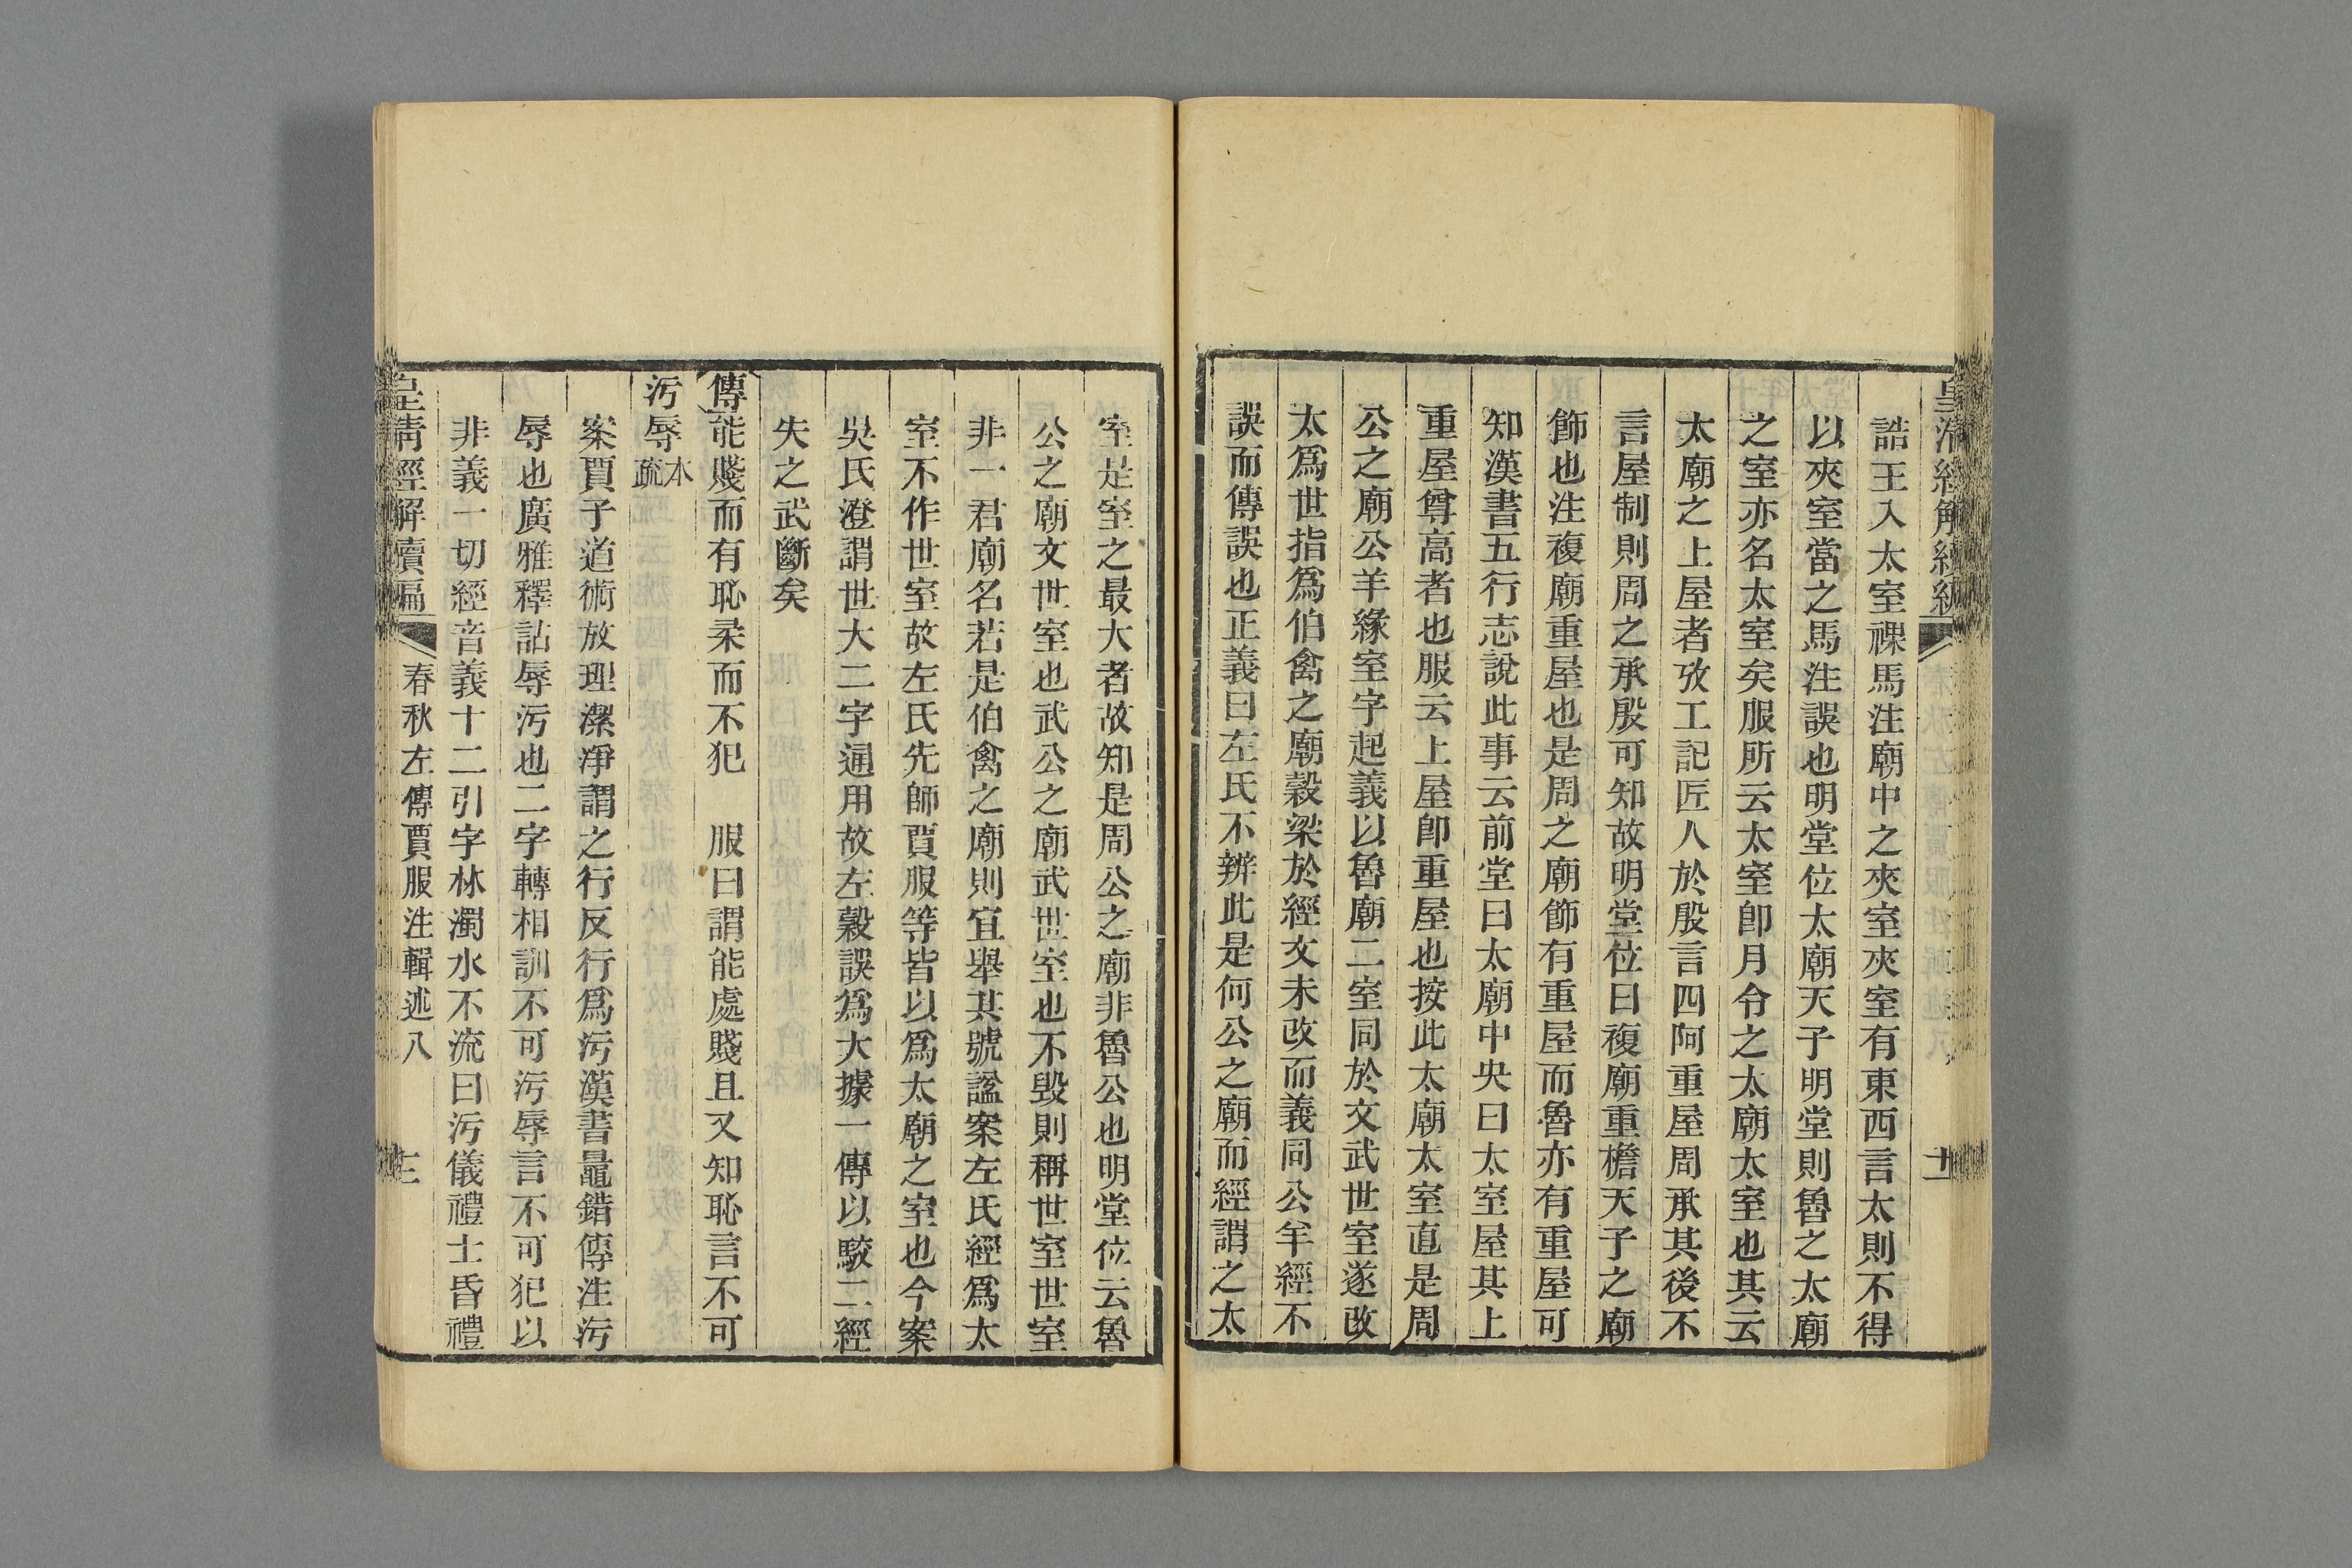 皇清經解續編
十一
誥王入太室祼馬注廟中之夾室夾室有東西言太則不得
以夾室當之馬注誤也明堂位太廟天子明堂則魯之太廟
之室亦名太室矣服所云太室卽月令之太廟太室也其云
太廟之上屋者攷工記匠人於殷言四阿重屋周承其後不
言屋制則周之承殷可知故明堂位曰複廟重檐天子之廟
飾也注複廟重屋也是周之廟飾有重屋而魯亦有重屋可
知漢書五行志說此事云前堂曰太廟中央曰太室屋其上
重屋尊高者也服云上屋卽重屋也按此太廟太室直是周
公之廟公羊緣室字起義以魯廟二室同於文武世室遂改
太爲世指爲伯禽之廟穀梁於經文未改而義同公羊經不
誤而傳誤也正義曰左氏不辨此是何公之廟而經謂之太
室是室之最大者故知是周公之廟非魯公也明堂位云魯
公之廟文世室也武公之廟武世室也不毀則稱世室世室
非一君廟名若是伯禽之廟則宜舉其號諡案左氏經爲太
室不作世室故左氏先師賈服等皆以爲太廟之室也今案
吳氏澄謂世大二字通用故左穀誤爲大據一傳以駮二經
失之武斷矣
傳能賤而有恥柔而不犯　服曰謂能處賤且又知恥言不可
污辱本疏
案賈子道術放理潔淨謂之行反行爲污漢書鼂錯傳注污
辱也廣雅釋詁辱污也二字轉相訓不可污辱言不可犯以
非義一切經音義十二引字林濁水不流曰污儀禮士昏禮
皇清經解續編
春秋左傳賈服注輯述八